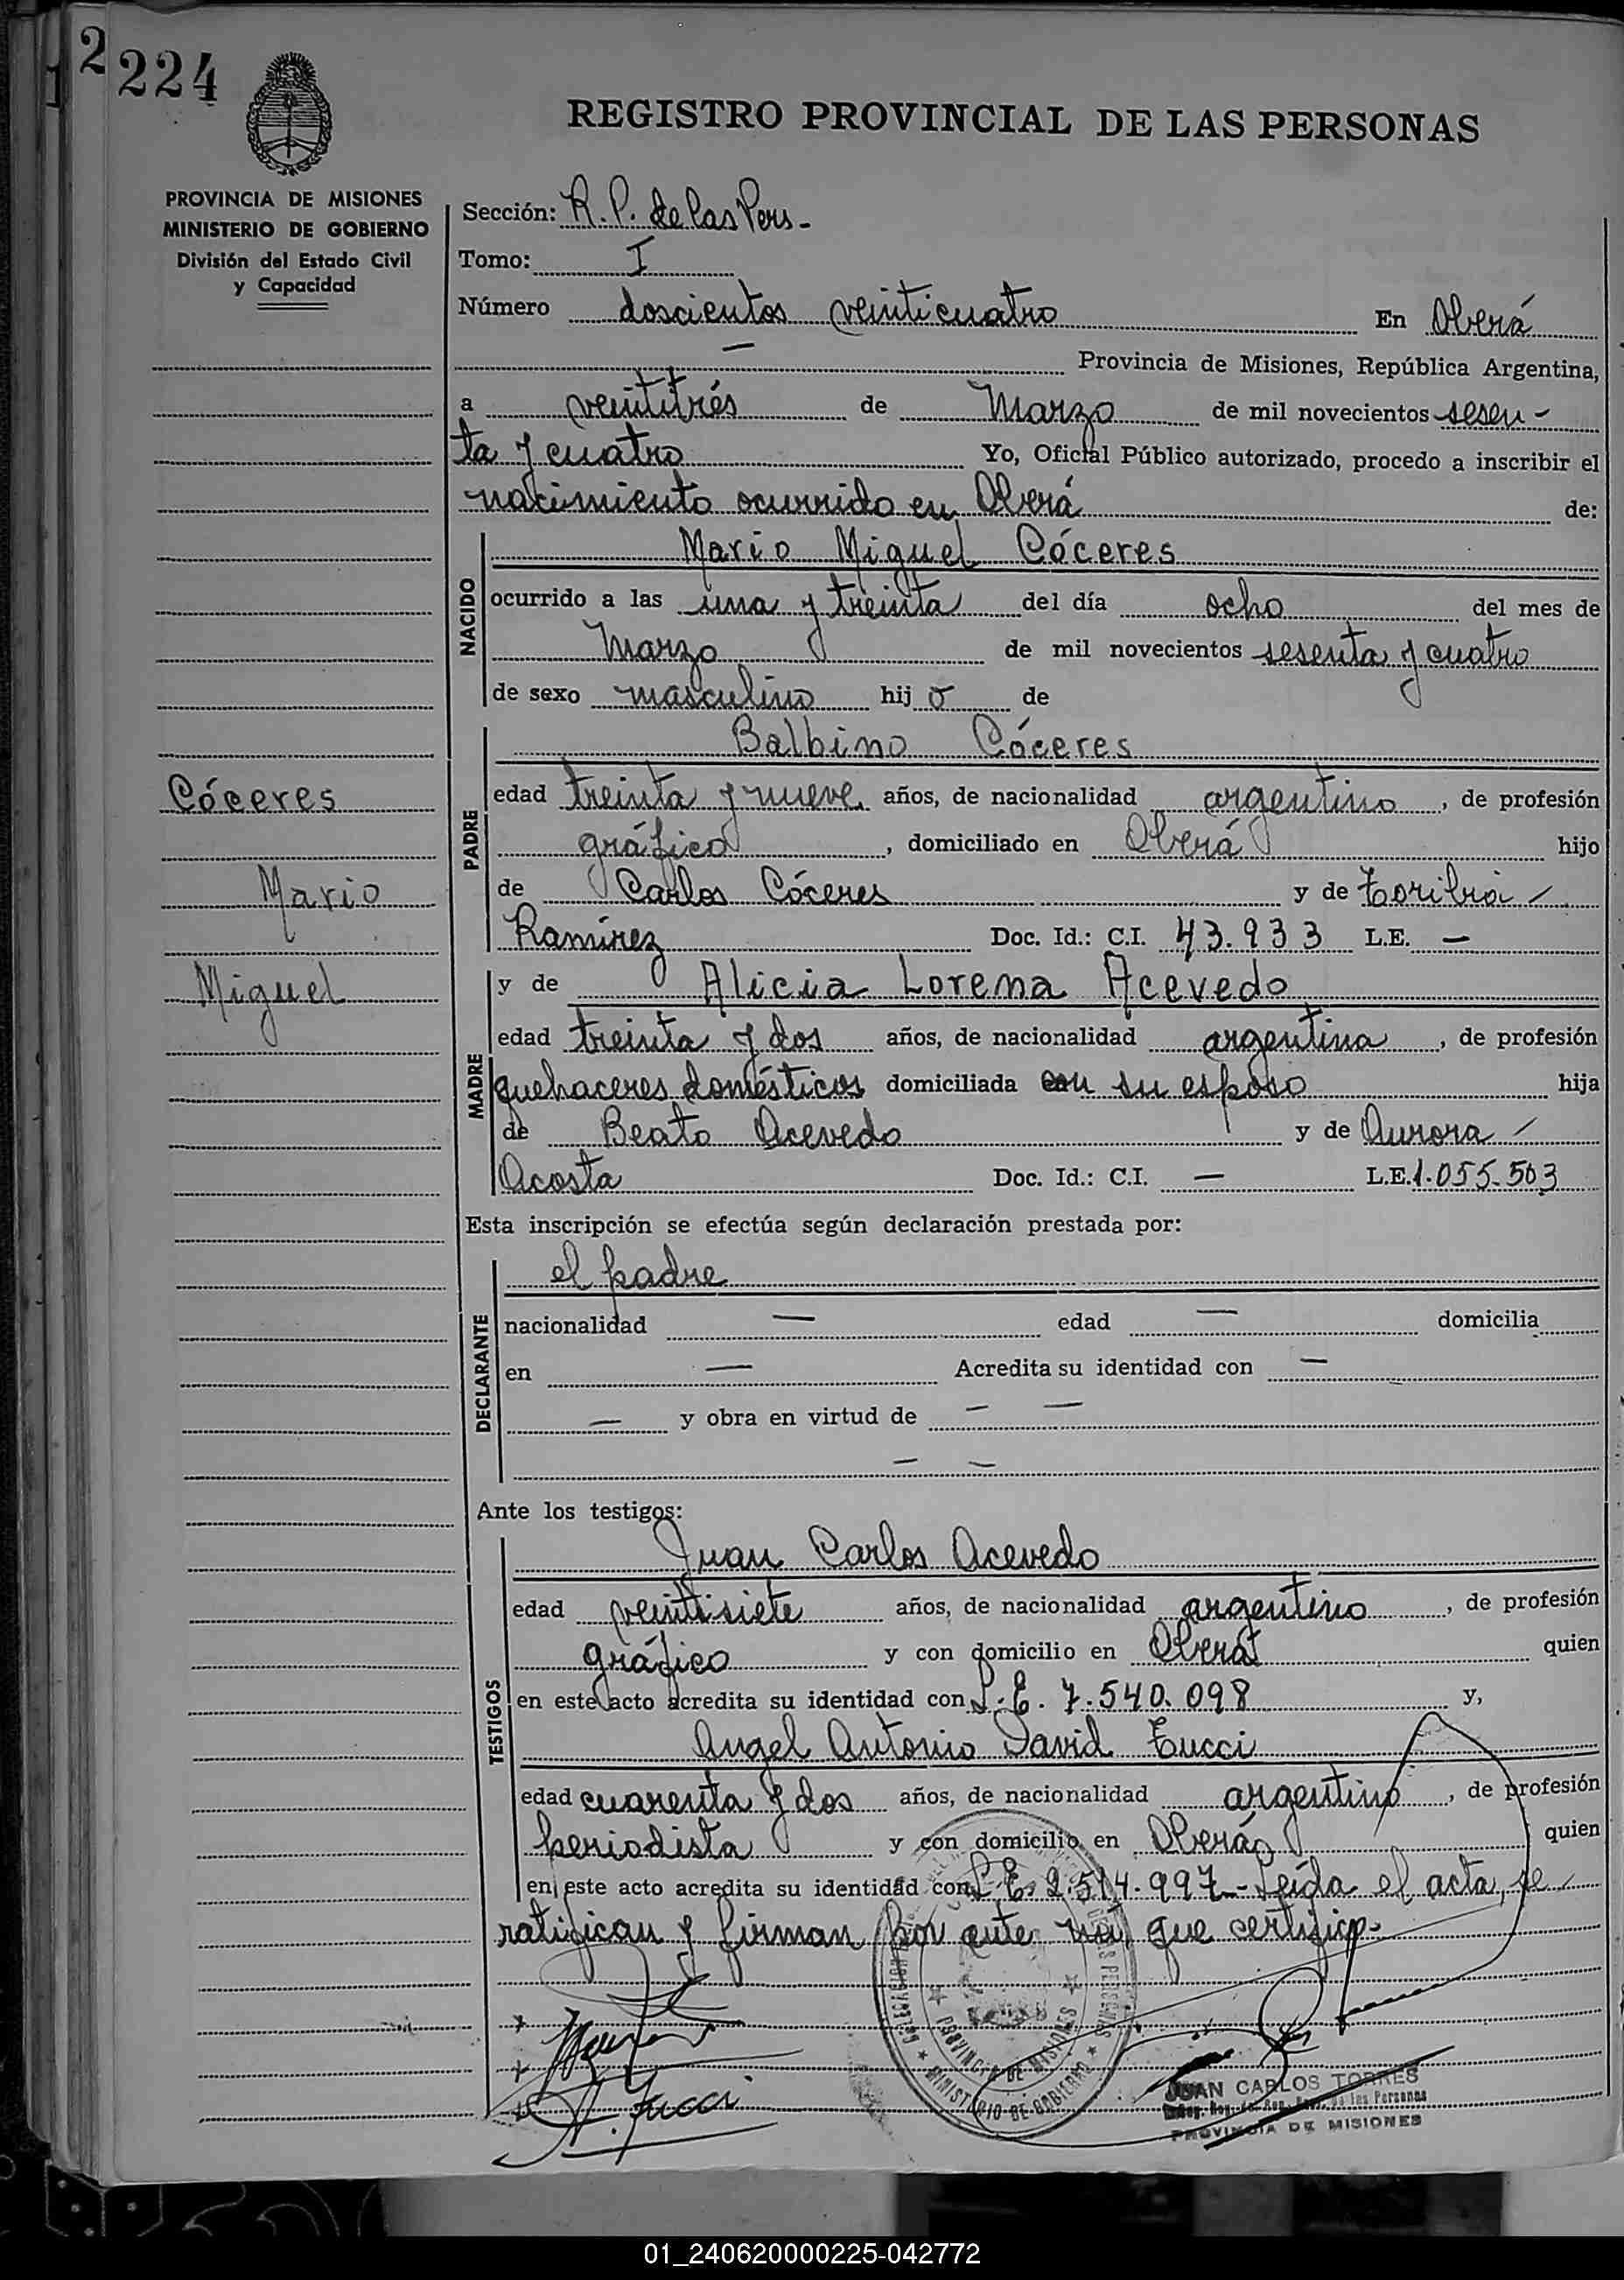 2
224
REGISTRO PROVINCIAL DE LAS PERSONAS
PROVINCIA DE MISIONES
MINISTERIO DE GOBIERNO
División del Estado Civil
y Capacidad
Sección: R. P. de las Pers-
Tomo: I
Número doscientos veinticuatro En Oberá
— Provincia de Misiones, República Argentina,
a veintitrés de Marzo de mil novecientos sesen-
ta y cuatro Yo, Oficial Público autorizado, procedo a inscribir el
nacimiento ocurrido en Oberá de:
NACIDO
Mario Miguel Cóceres
ocurrido a las una y treinta del día ocho del mes de
Marzo de mil novecientos sesenta y cuatro
de sexo masculino hij o de
PADRE
Balbino Cóceres
edad treinta y nueve años, de nacionalidad argentino, de profesión
gráfico, domiciliado en Oberá hijo
de Carlos Cóceres y de Toribia
Ramírez Doc. Id.: C.I. 43.933 L.E. —
Cóceres
Mario
Miguel
MADRE
y de Alicia Lorena Acevedo
edad treinta y dos años, de nacionalidad argentina, de profesión
quehaceres domésticos domiciliada con su esposo hija
de Beato Acevedo y de Aurora
Acosta Doc. Id.: C.I. — L.E. 1.055.503
Esta inscripción se efectúa según declaración prestada por:
DECLARANTE
el padre
nacionalidad — edad — domicilia
en — Acredita su identidad con —
— y obra en virtud de — —
— —
Ante los testigos:
TESTIGOS
Juan Carlos Acevedo
edad veintisiete años, de nacionalidad argentino, de profesión
gráfico y con domicilio en Oberá quien
en este acto acredita su identidad con L.E. 7.540.098 y,
Angel Antonio David Tucci
edad cuarenta y dos años, de nacionalidad argentino, de profesión
periodista y con domicilio en Oberá quien
en este acto acredita su identidad con L.E. 2.514.997- Leída el acta, se
ratifican y firman por ante mí, que certifico.-
A. Tucci
PROVINCIA DE MISIONES
MINISTERIO DE GOBIERNO
JUAN CARLOS TORRES
de las Personas
PROVINCIA DE MISIONES
01_240620000225-042772